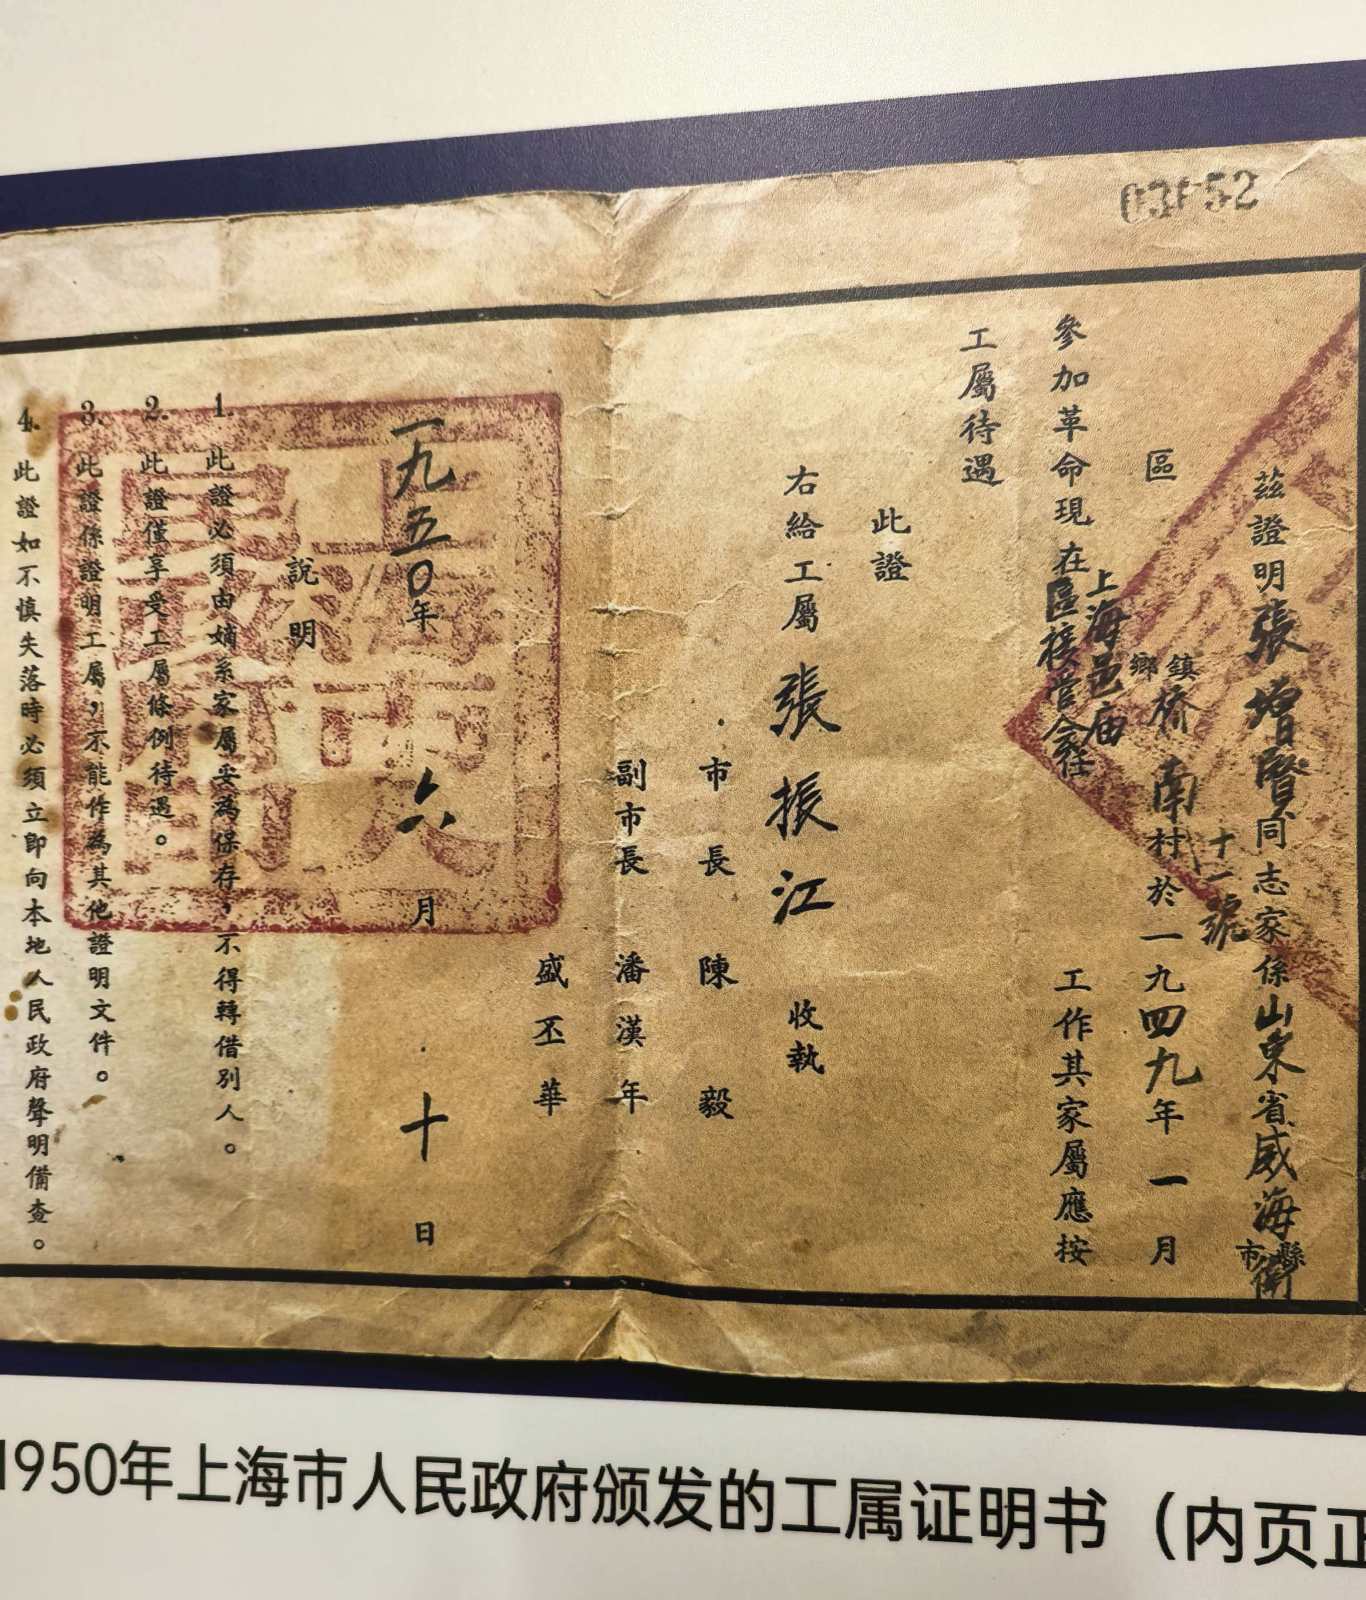 茲證明張增賢同志家係山東省威海衛市縣
十一號
區鄉鎮桥南村於一九四九年一月
參加革命現在上海邑庙區接管會任工作其家屬應按
工屬待遇
此證
右給工屬張振江收執
市長陳毅
副市長潘漢年
盛丕華
一九五〇年六月十日
說明
1.此證必須由嫡系家屬妥為保存,不得轉借別人。
2.此證僅享受工屬條例待遇。
3.此證係證明工屬,不能作為其他證明文件。
4.此證如不慎失落時必須立即向本地人民政府聲明備查。
1950年上海市人民政府颁发的工属证明书(内页正